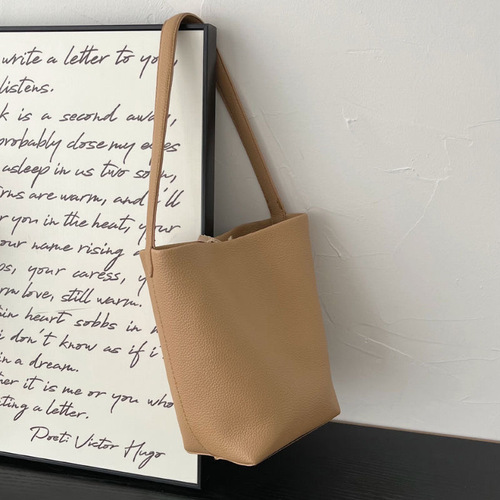 write a letter to yo
listens.
k is a second away,
probably close my eyes
asleep in us two so n,
rms are warm, and i'll
r you in the heat, your
our name rising a
ps, your caress, y
rm love, still warm.
in heart sobbs in
i don't know as if i
in a dream.
her it is me or you who
ting a letter.
Poet: Victor Hugo